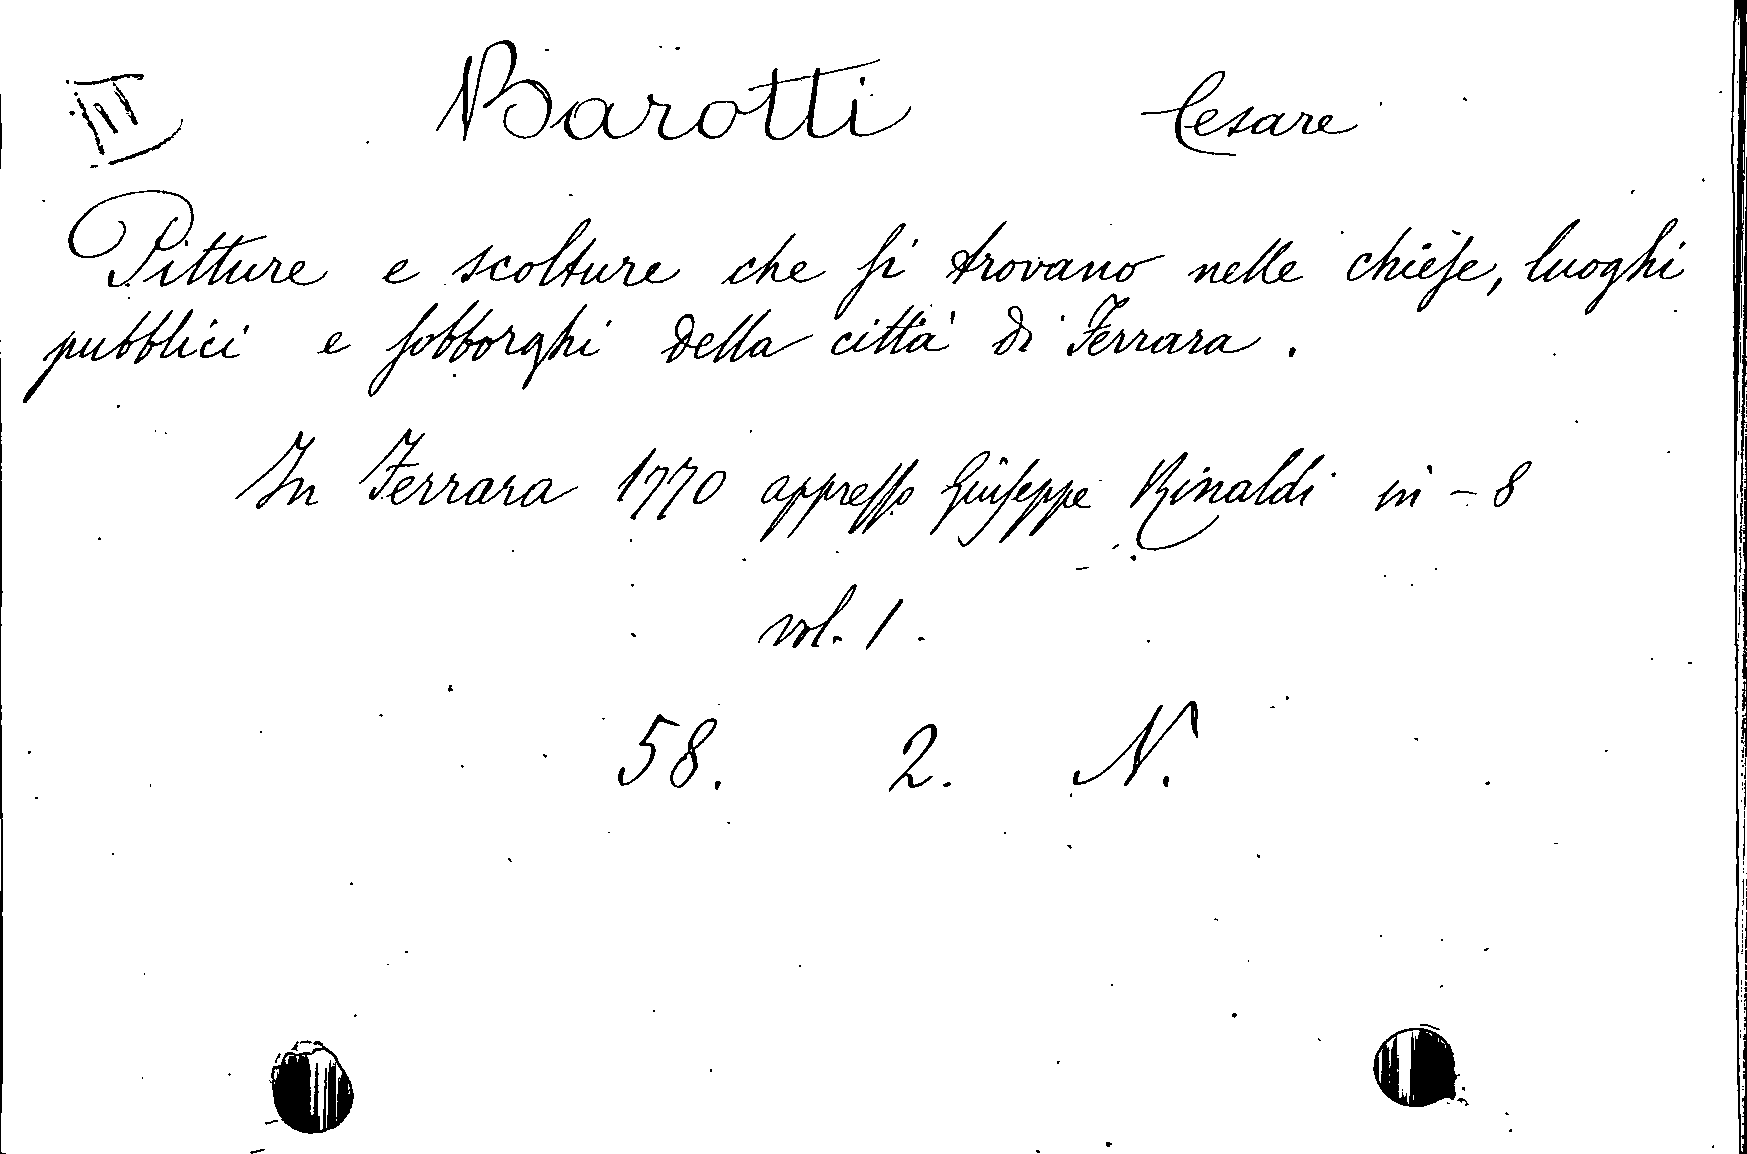 III Barotti Cesare
Pitture e scolture che ſi trovano nelle chieſe, luoghi
pubblici e ſobborghi della città di Ferrara.
In Ferrara 1770 appreſſo Giuſeppe Rinaldi in-8
vol. 1.
58. 2. N.